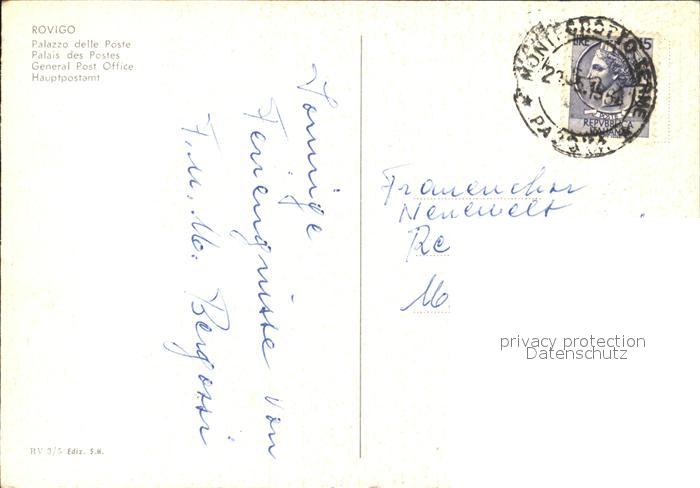 ROVIGO
Palazzo delle Poste
Palais des Postes
General Post Office
Hauptpostamt
Sonnige
Feriengrüsse von
F. u. M. Bergossi
MONTEGROTTO TERME
23.5.196
PADOVA
LIRE 15
POSTE
REPVBBLICA
ITALIANA
Frauenchor
Neuewelt
Re
M
privacy protection
Datenschutz
RV 3/5 Ediz. S.M.